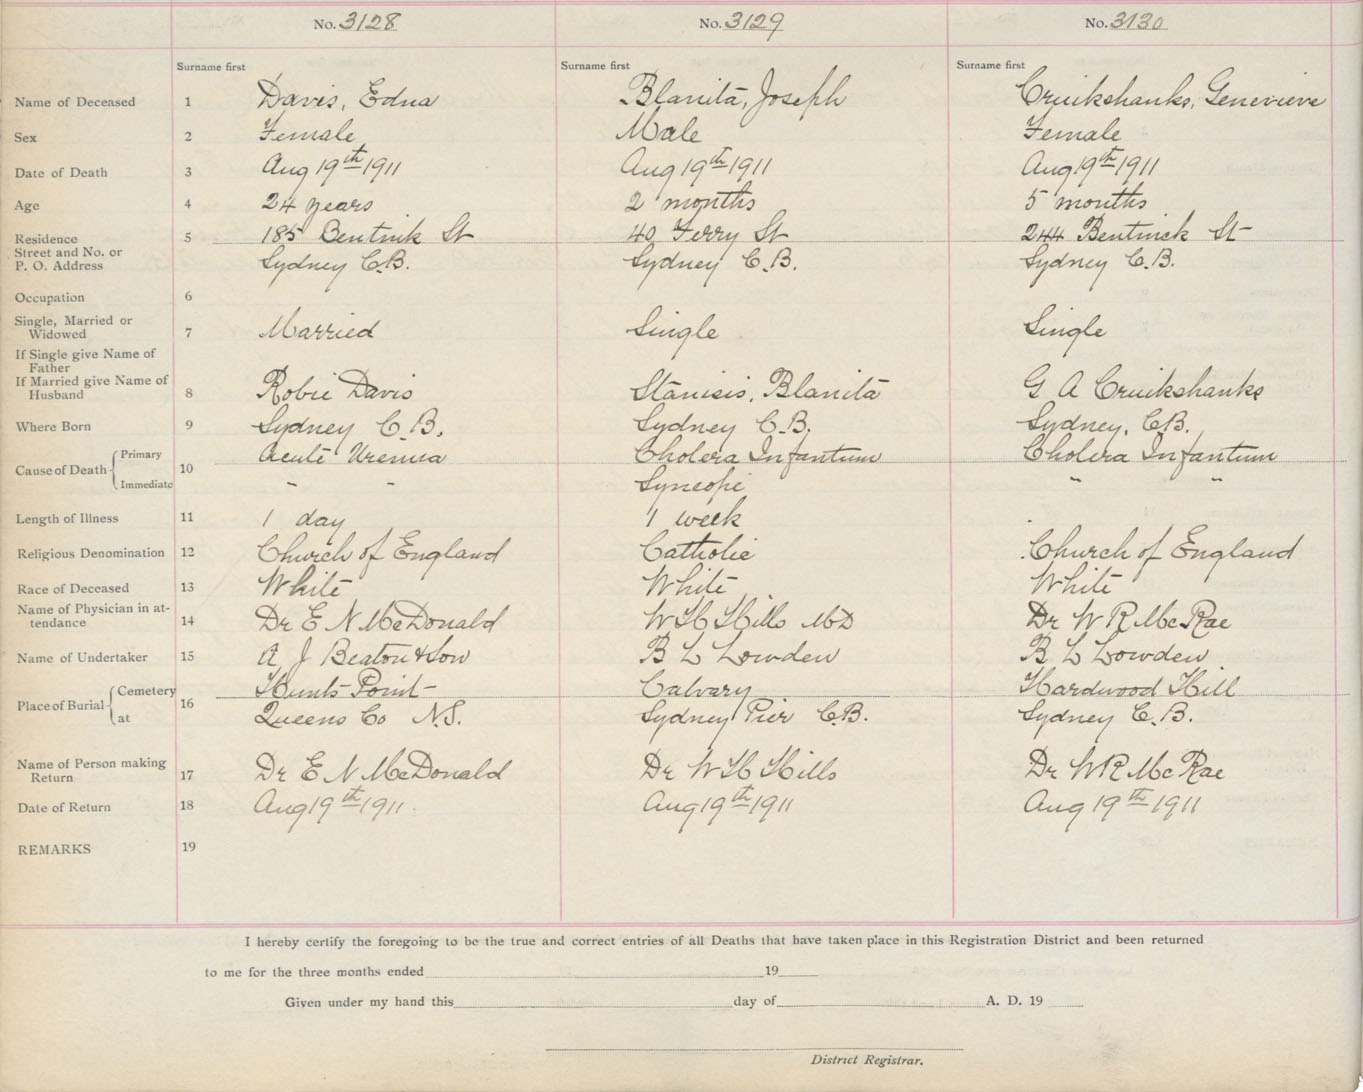 No. 3128 No. 3129 No. 3130
Surname first Surname first Surname first
Name of Deceased 1 Davis, Edna Blanita, Joseph Cruikshanks, Genevieve
Sex 2 Female Male Female
Date of Death 3 Aug 19th 1911 Aug 19th 1911 Aug 19th 1911
Age 4 24 years 2 months 5 months
Residence 5 185 Bentnik St 40 Ferry St 244 Bentinck St
Street and No. or
P. O. Address Sydney C.B. Sydney C.B. Sydney C.B.
Occupation 6
Single, Married or
Widowed 7 Married Single Single
If Single give Name of
Father
If Married give Name of
Husband 8 Robie Davis Stanisis, Blanita G A Cruikshanks
Where Born 9 Sydney C.B. Sydney C.B. Sydney, C.B.
Cause of Death 10 Primary Acute Uremia Cholera Infantum Cholera Infantum
Immediate " " Syncope " "
Length of Illness 11 1 day 1 week
Religious Denomination 12 Church of England Catholic Church of England
Race of Deceased 13 White White White
Name of Physician in at-
tendance 14 Dr E N McDonald W H Hills MD Dr W R McRae
Name of Undertaker 15 A J Beaton & Son B L Lowden B L Lowden
Place of Burial 16 Cemetery Hunts Point Calvary Hardwood Hill
at Queens Co N.S. Sydney Pier C.B. Sydney C.B.
Name of Person making
Return 17 Dr E N McDonald Dr W H Hills Dr W R McRae
Date of Return 18 Aug 19th 1911 Aug 19th 1911 Aug 19th 1911
REMARKS 19
I hereby certify the foregoing to be the true and correct entries of all Deaths that have taken place in this Registration District and been returned
to me for the three months ended 19
Given under my hand this day of A. D. 19
District Registrar.